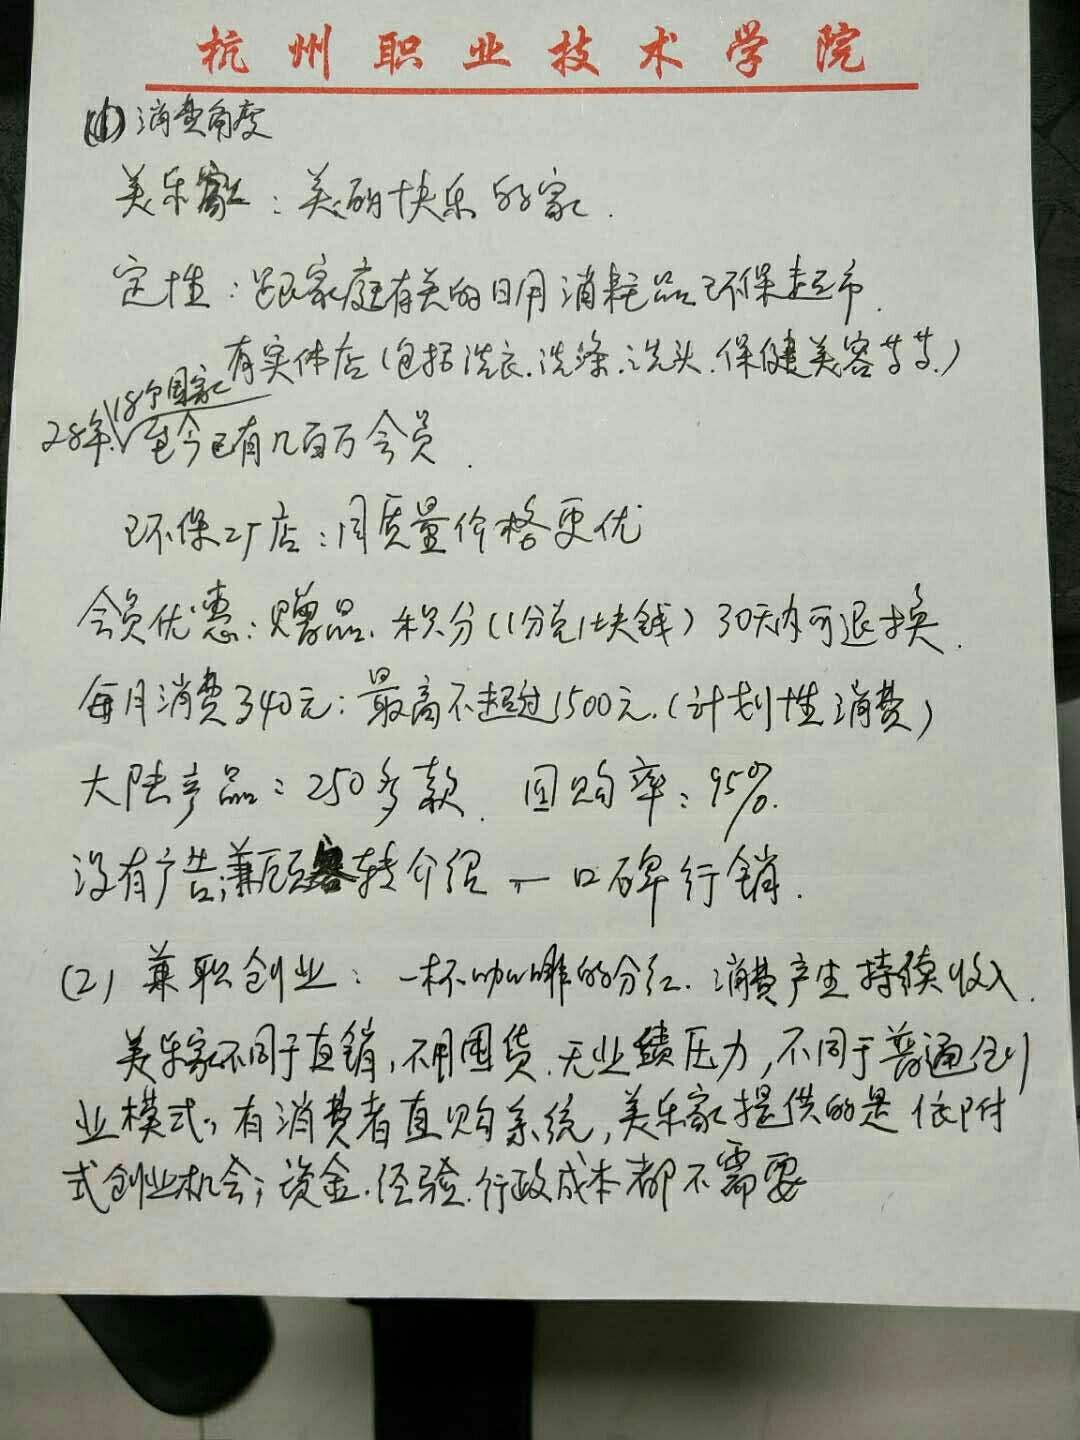 杭州职业技术学院
(1) 消费角度
美乐家：美丽快乐的家.
定性：跟家庭有关的日用消耗品环保超市.
有实体店(包括洗衣.洗涤.洗头.保健美容等等.)
18个国家
28年.至今已有几百万会员.
环保工厂店：同质量价格更优
会员优惠：赠品.积分(1分兑1块钱) 30天内可退换.
每月消费340元：最高不超过1500元.(计划性消费)
大陆产品：250多款. 回购率：95%.
没有广告,兼顾客转介绍 — 口碑行销.
(2) 兼职创业：一杯咖啡的分红. 消费产生持续收入.
美乐家不同于直销,不用囤货.无业绩压力,不同于普通创
业模式,有消费者直购系统,美乐家提供的是依附
式创业机会;资金.经验.行政成本都不需要